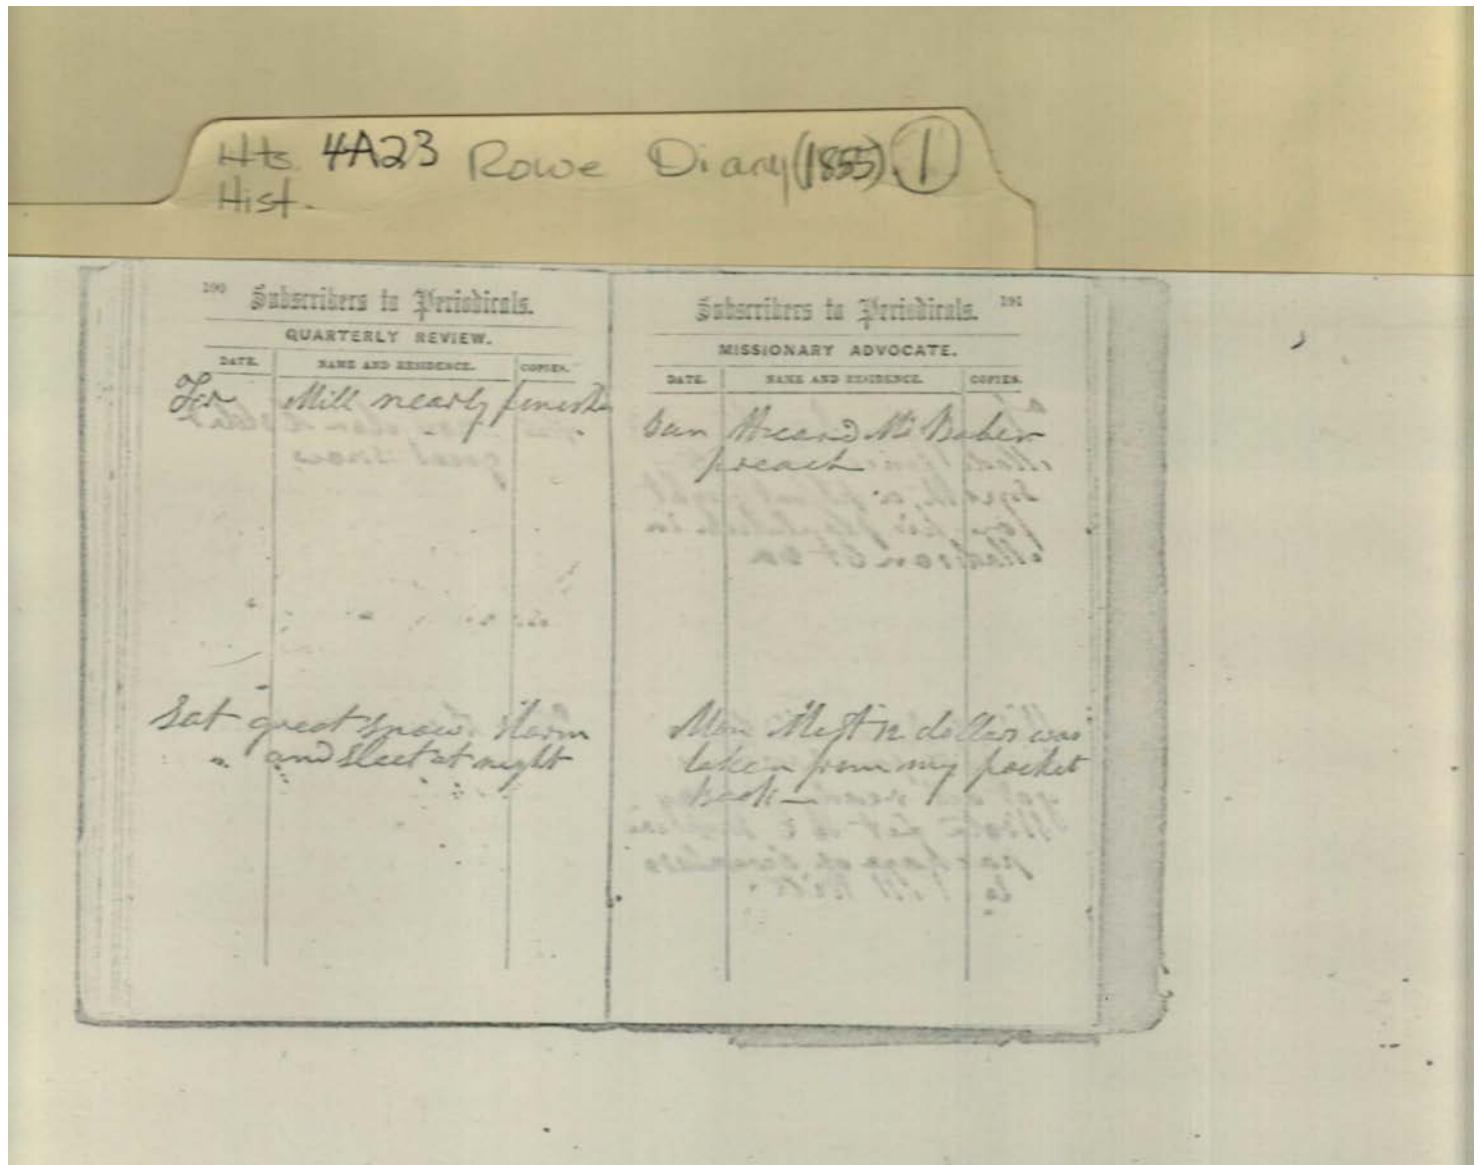 Hts. 4A23 Rowe Diary (1855) 1
Hist.
190 Subscribers to Periodicals.
QUARTERLY REVIEW.
DATE. NAME AND RESIDENCE. COPIES.
Mill nearly
Sat great snow storm
and sleet at night
Subscribers to Periodicals. 191
MISSIONARY ADVOCATE.
DATE. NAME AND RESIDENCE. COPIES.
Sun Heard Mr Baber
preach
Mon 12 dollars was
taken from my pocket
book